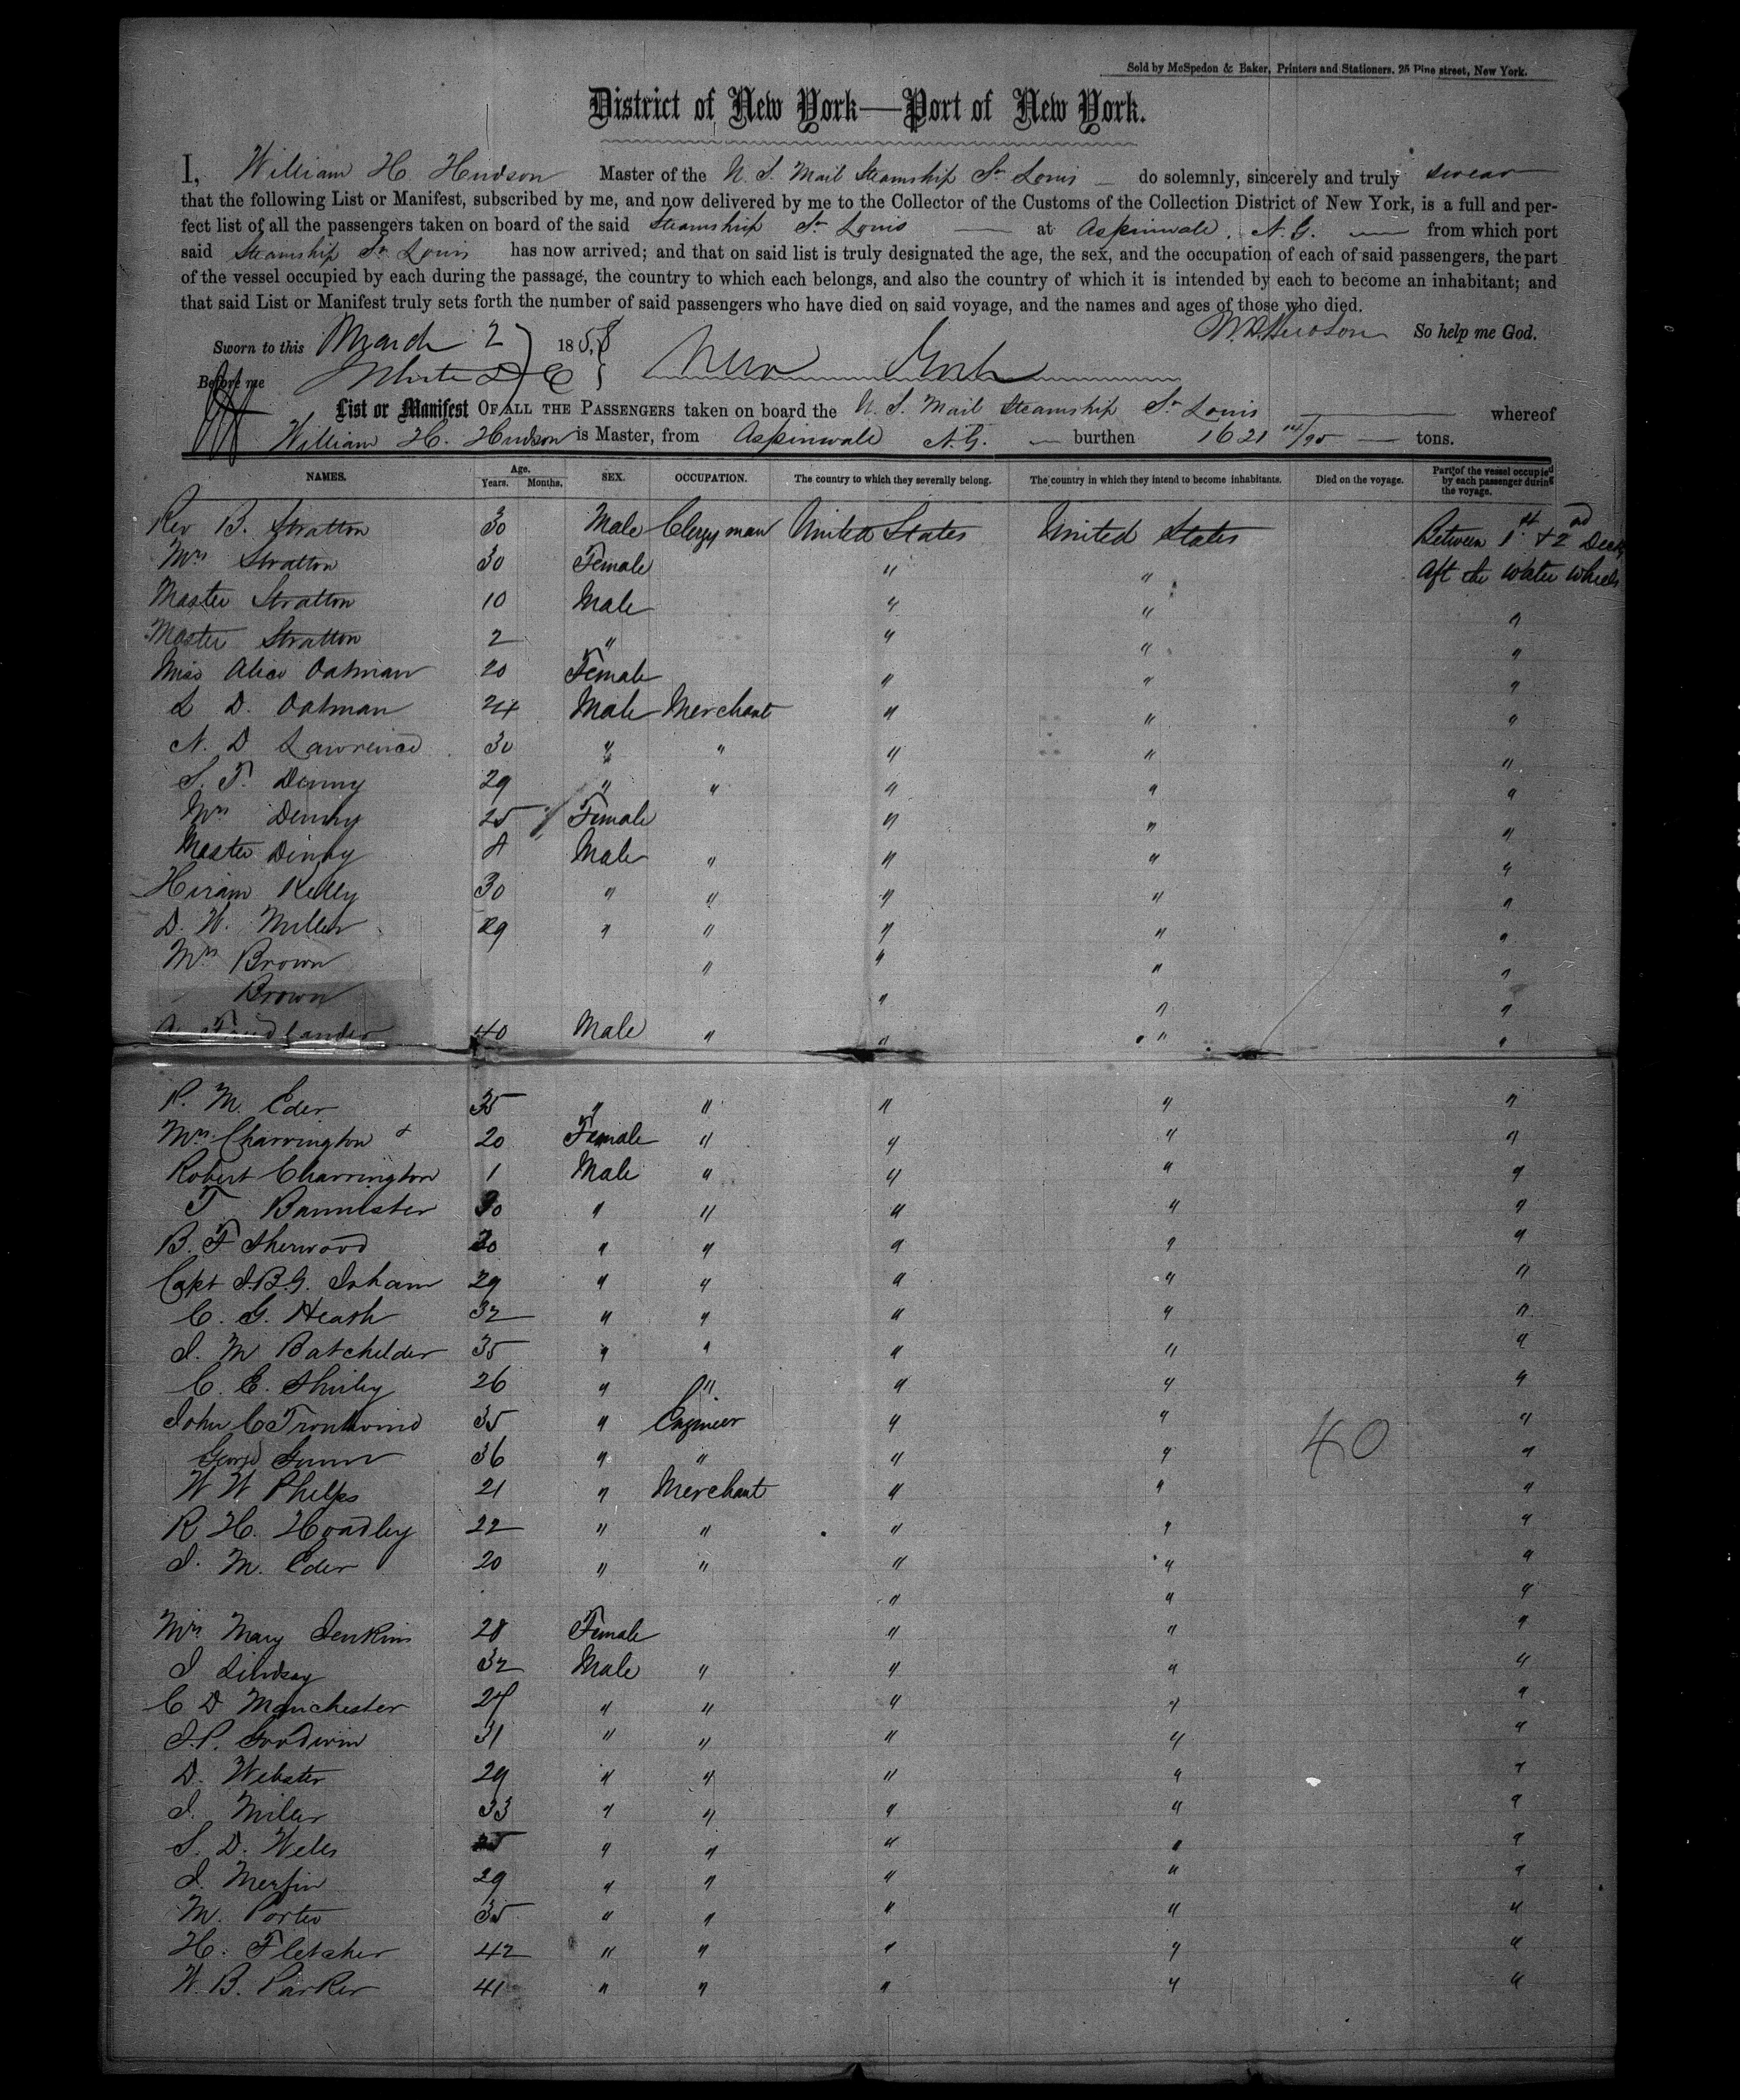 Sold by McSpedon & Baker, Printers and Stationers, 25 Pine street, New York.
District of New York—Port of New York.
I, William H. Hudson Master of the U. S. Mail Steamship St Louis — do solemnly, sincerely and truly swear
that the following List or Manifest, subscribed by me, and now delivered by me to the Collector of the Customs of the Collection District of New York, is a full and per-
fect list of all the passengers taken on board of the said Steamship St Louis — at Aspinwall, N. G. — from which port
said Steamship St Louis has now arrived; and that on said list is truly designated the age, the sex, and the occupation of each of said passengers, the part
of the vessel occupied by each during the passage, the country to which each belongs, and also the country of which it is intended by each to become an inhabitant; and
that said List or Manifest truly sets forth the number of said passengers who have died on said voyage, and the names and ages of those who died.
W. H. Hudson So help me God.
Sworn to this March 2 1858, New York
Before me
List or Manifest OF ALL THE PASSENGERS taken on board the U. S. Mail Steamship St Louis — whereof
William H. Hudson is Master, from Aspinwall N. G. — burthen 1621 14/95 — tons.
NAMES. Age. Years. Months. SEX. OCCUPATION. The country to which they severally belong. The country in which they intend to become inhabitants. Died on the voyage. Part of the vessel occupied by each passenger during the voyage.
Rev B. Stratton 30 Male Clergyman United States United States Between 1st & 2nd Deck
Mrs Stratton 30 Female " " Aft the Water Wheels
Master Stratton 10 Male " " "
Master Stratton 2 " " " "
Miss Alice Oatman 20 Female " " "
L D. Oatman 24 Male Merchant " " "
N. D Lawrence 30 " " " " "
S. T. Denny 29 " " " " "
Mrs Denny 25 Female " " "
Master Denny Male " " " "
Hiram Kelly 30 " " " " "
D. W. Miller 29 " " " " "
Mrs Brown " " " "
Brown " " "
40 Male " " " "
P. M. Eder 35 " " " " "
Mrs Charrington 20 Female " " " "
Robert Charrington 1 Male " " " "
T Bannister 30 " " " " "
B. F Sherwood 30 " " " " "
Capt J.B.G. Isham 29 " " " " "
C. G. Heath 32 " " " " "
J. M Batchelder 35 " " " " "
C. E. Shirley 26 " " " " "
John C 35 " Engineer " " "
George 36 " " " " "
40
W W Phelps 21 " Merchant " " "
R H. Hoadley 22 " " " " "
J. M. Eder 20 " " " " "
" " "
Mrs Mary Jenkins 28 Female " " "
J Lindsay 32 Male " " " "
C D Manchester 24 " " " " "
J. P. Goodwin 31 " " " " "
D. Webster 29 " " " " "
J. Miller 33 " " " " "
S. D. Wells 25 " " " " "
J. 29 " " " " "
M. Porter 35 " " " " "
H. Fletcher 42 " " " " "
W. B. Parker 41 " " " " "